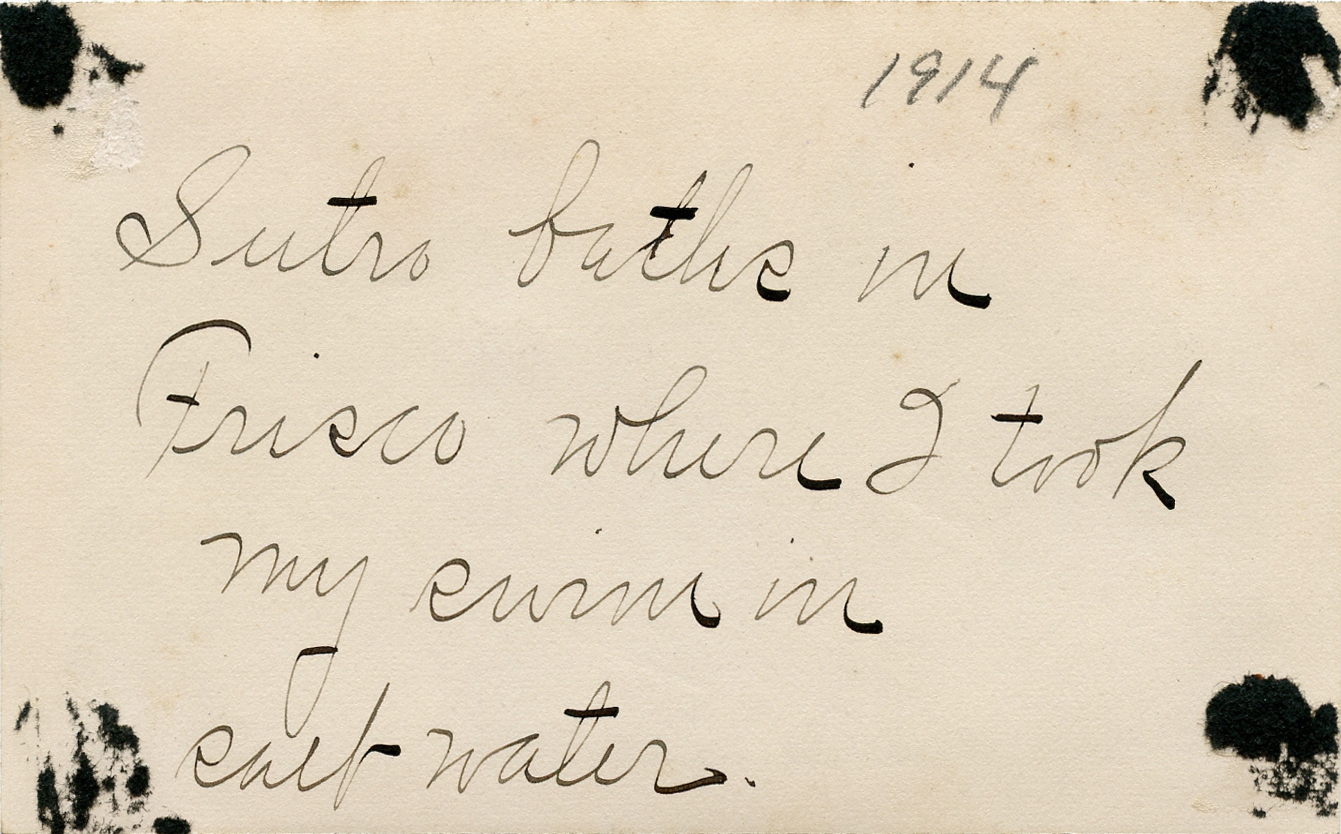 1914
Sutro baths in
Frisco where I took
my swim in
salt water.